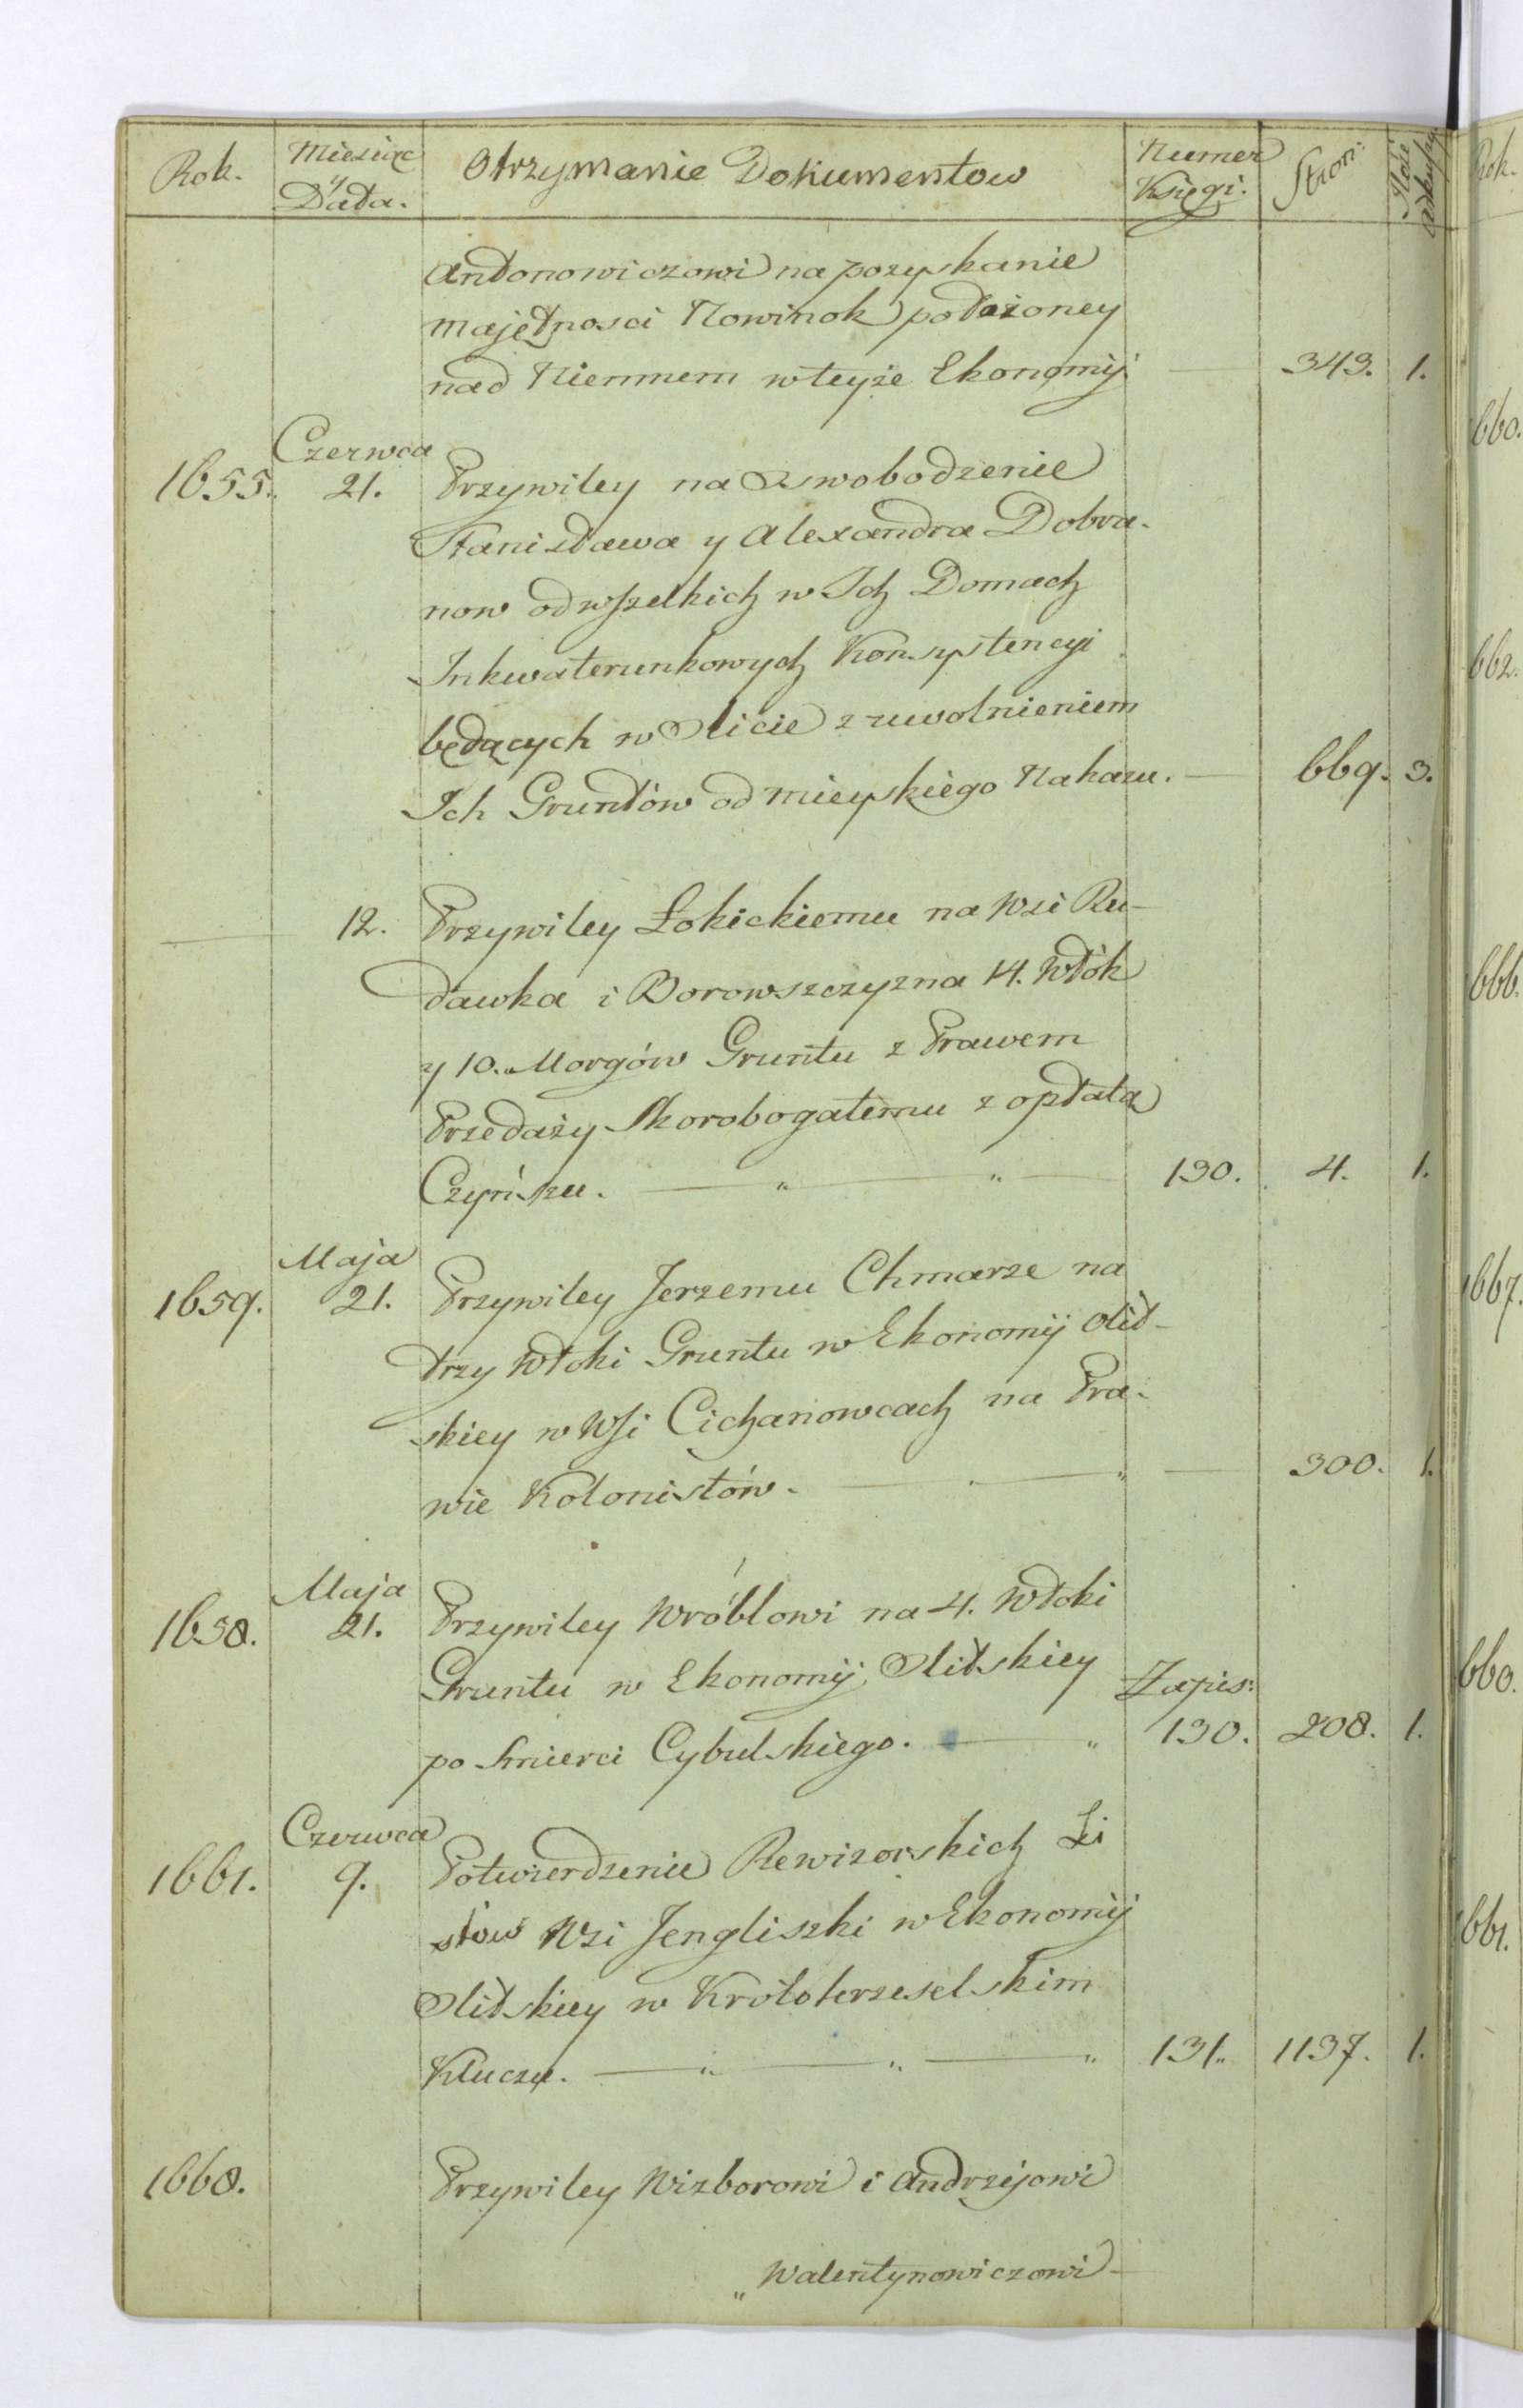 Rok. Miesiąc y Data. Otrzymanie Dokumentow Numer Księgi. Stron: Ilość
Antonowiczowi na pozyskanie
majętnosci Nowinok położoney
nad Niemnem w teyże Ekonomij 343. 1.
Czerwca
1655. 21. Przywiley na Oswobodzenie
Stanisława y Alexandra Dobra-
now od wszelkich w Ich Domach
Inkwaterunkowych Konsystencyi
będących w Olicie z uwolnieniem
Ich Gruntów od mieyskiego Nakazu. 669. 3.
12. Przywiley Łokickiemu na Wsi Ru-
dawka i Borowszczyzna 14. Włók
y 10. Morgów Gruntu z Prawem
Przedaży Skorobogatemu z opłatą
Czyńszu. 130. 4. 1.
Maja
1659. 21. Przywiley Jerzemu Chmarze na
trzy Włoki Gruntu w Ekonomij Olit-
skiey w Wsi Cichanowcach na Pra-
wie Kolonistów. 300. 1.
Maja
1658. 21. Przywiley Wróblowi na 4. Włoki
Gruntu w Ekonomij Olitskiey Zapis:
po śmierci Cybulskiego. 130. 208. 1.
Czerwca
1661. 9. Potwierdzenie Rewizorskich Li
stow Wsi Jengliszki w Ekonomij
Olitskiey w
Kluczu. 131. 1137. 1.
1668. Przywiley Wizborowi i Andrzejowi
Walentynowiczowi
Rok.
660.
662.
666.
667.
660.
661.